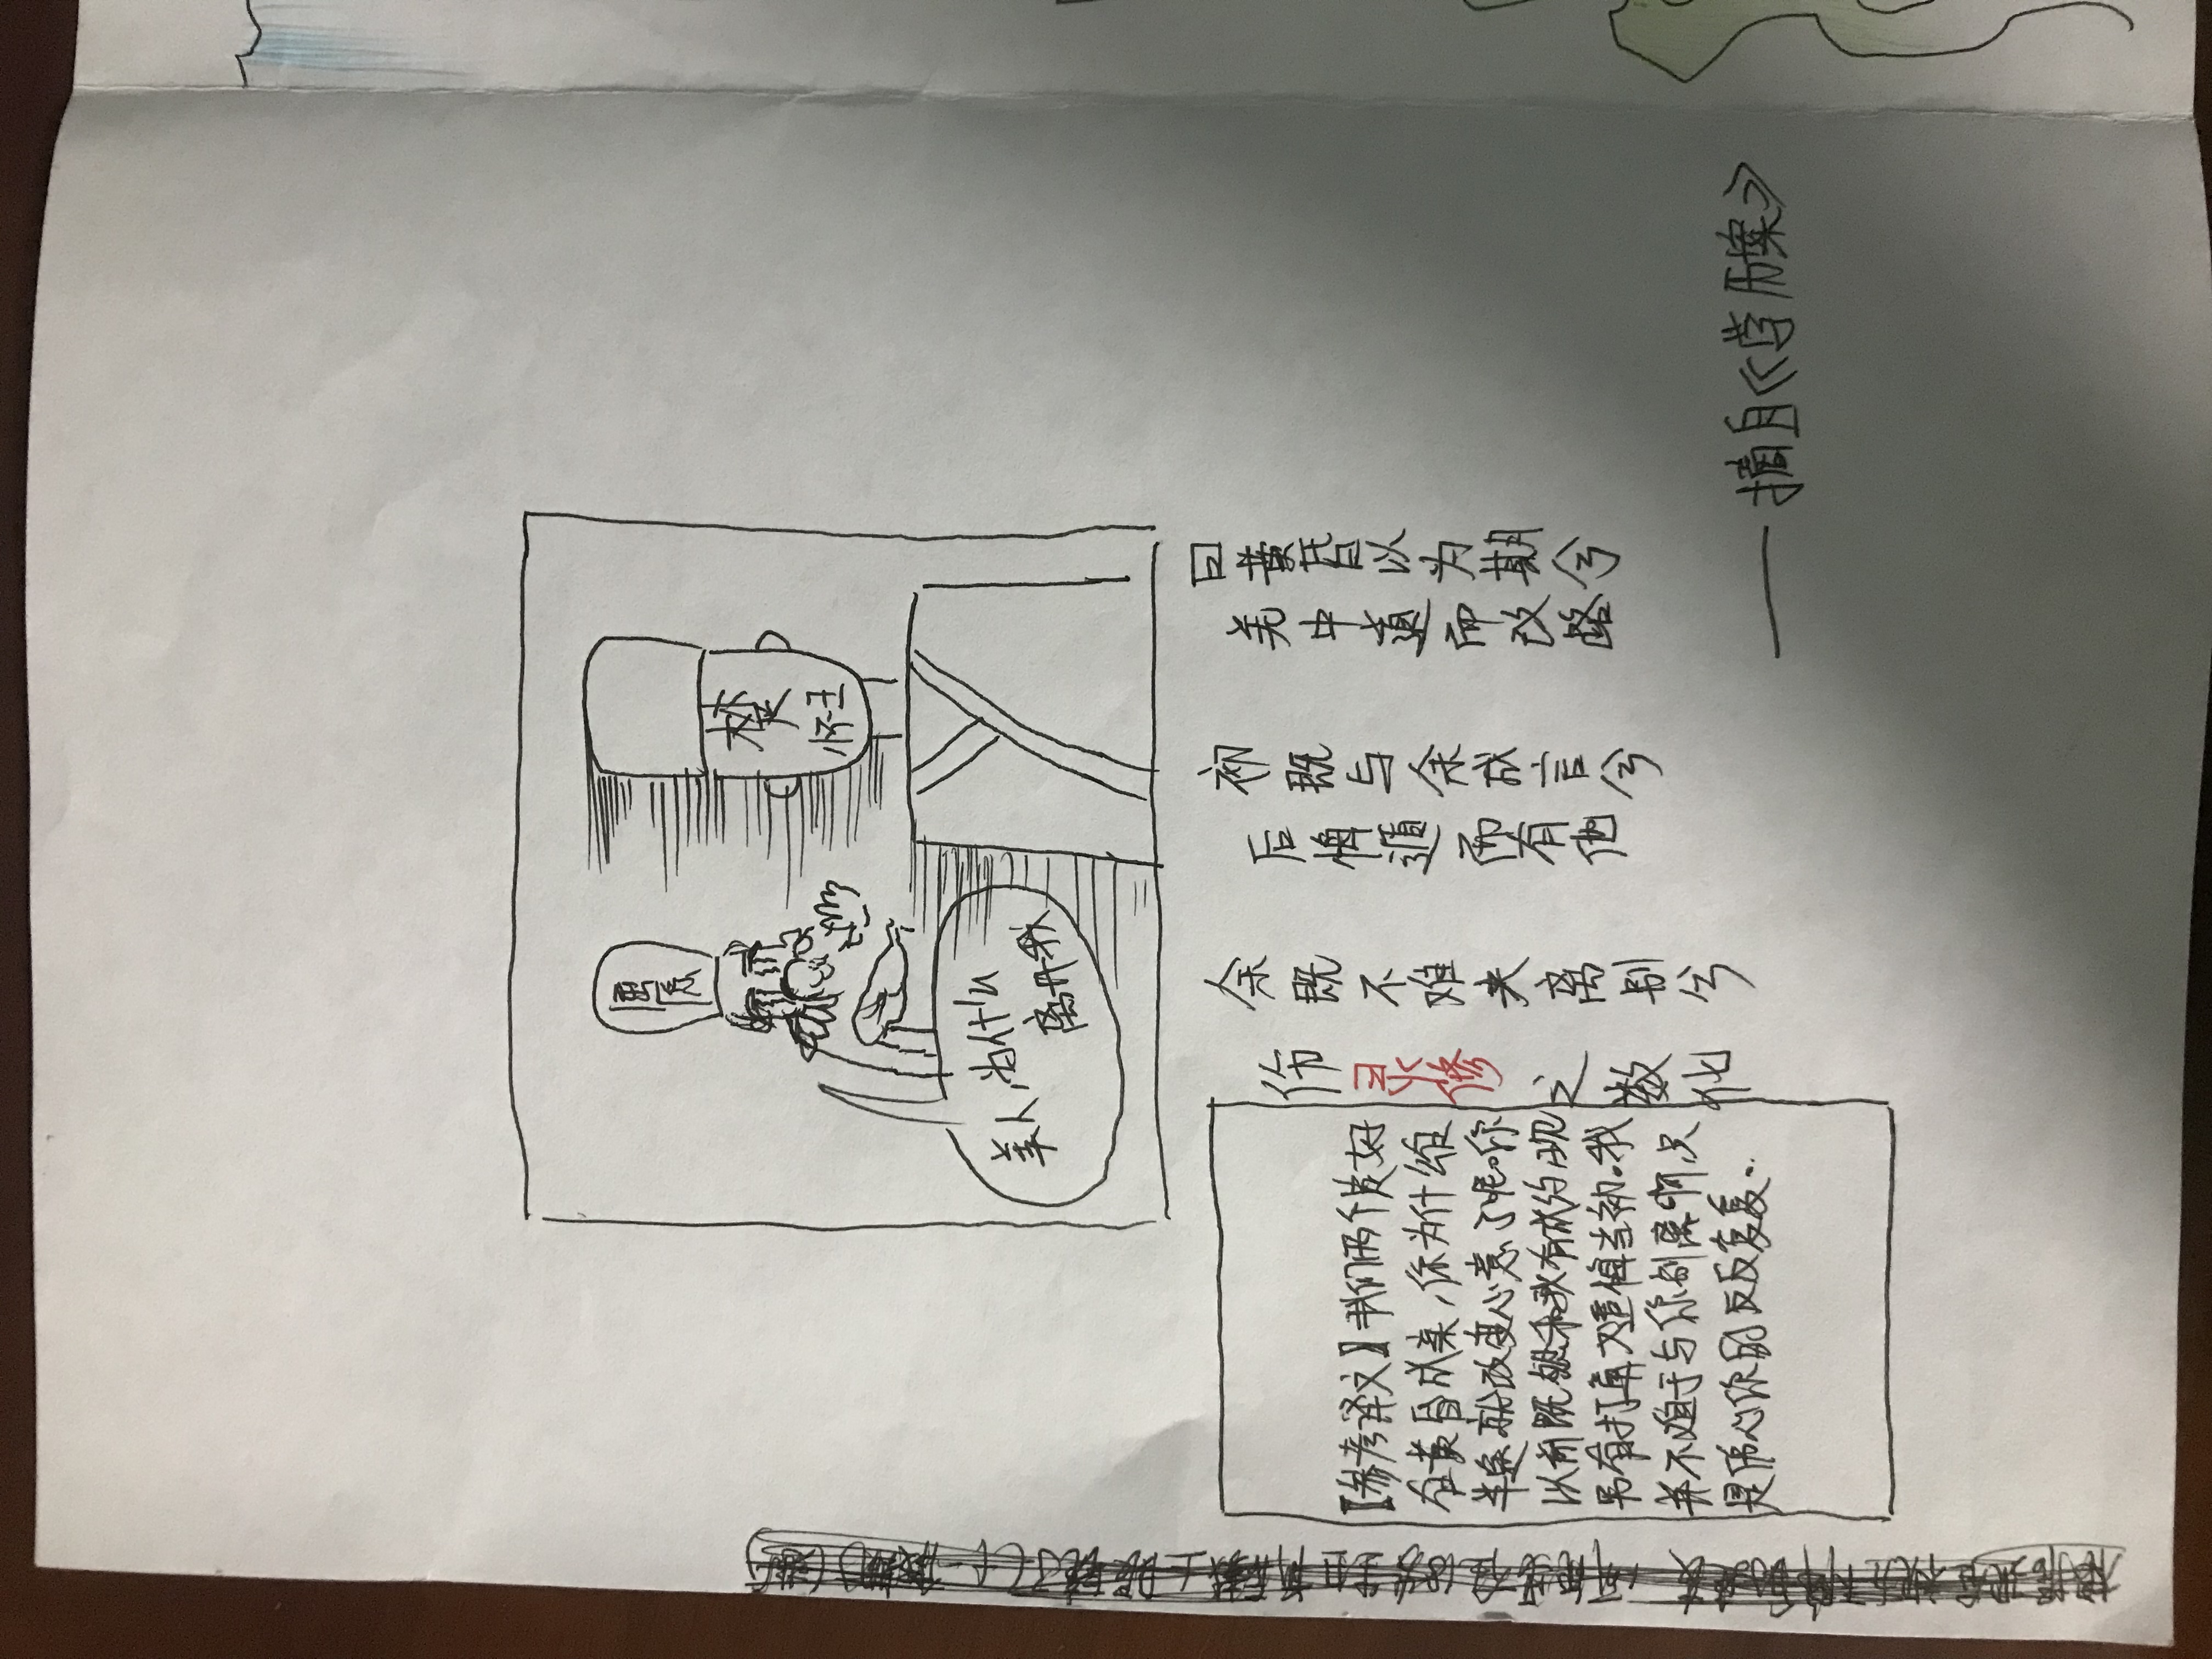 屈原
楚
怀王
美人，为什么
离开我
曰黄昏以为期兮
羌中道而改路
初既与余成言兮
后悔遁而有他
余既不难夫离别兮
伤灵修之数化
【参考译文】我们两个好
在黄昏成亲，你为什
半途就改变心意了呢。你
以前既然和我有成约现
另有打算又违悔当初。我
并不难于与你别离啊，只
是伤心你的反反复复..
——摘自《学历案》